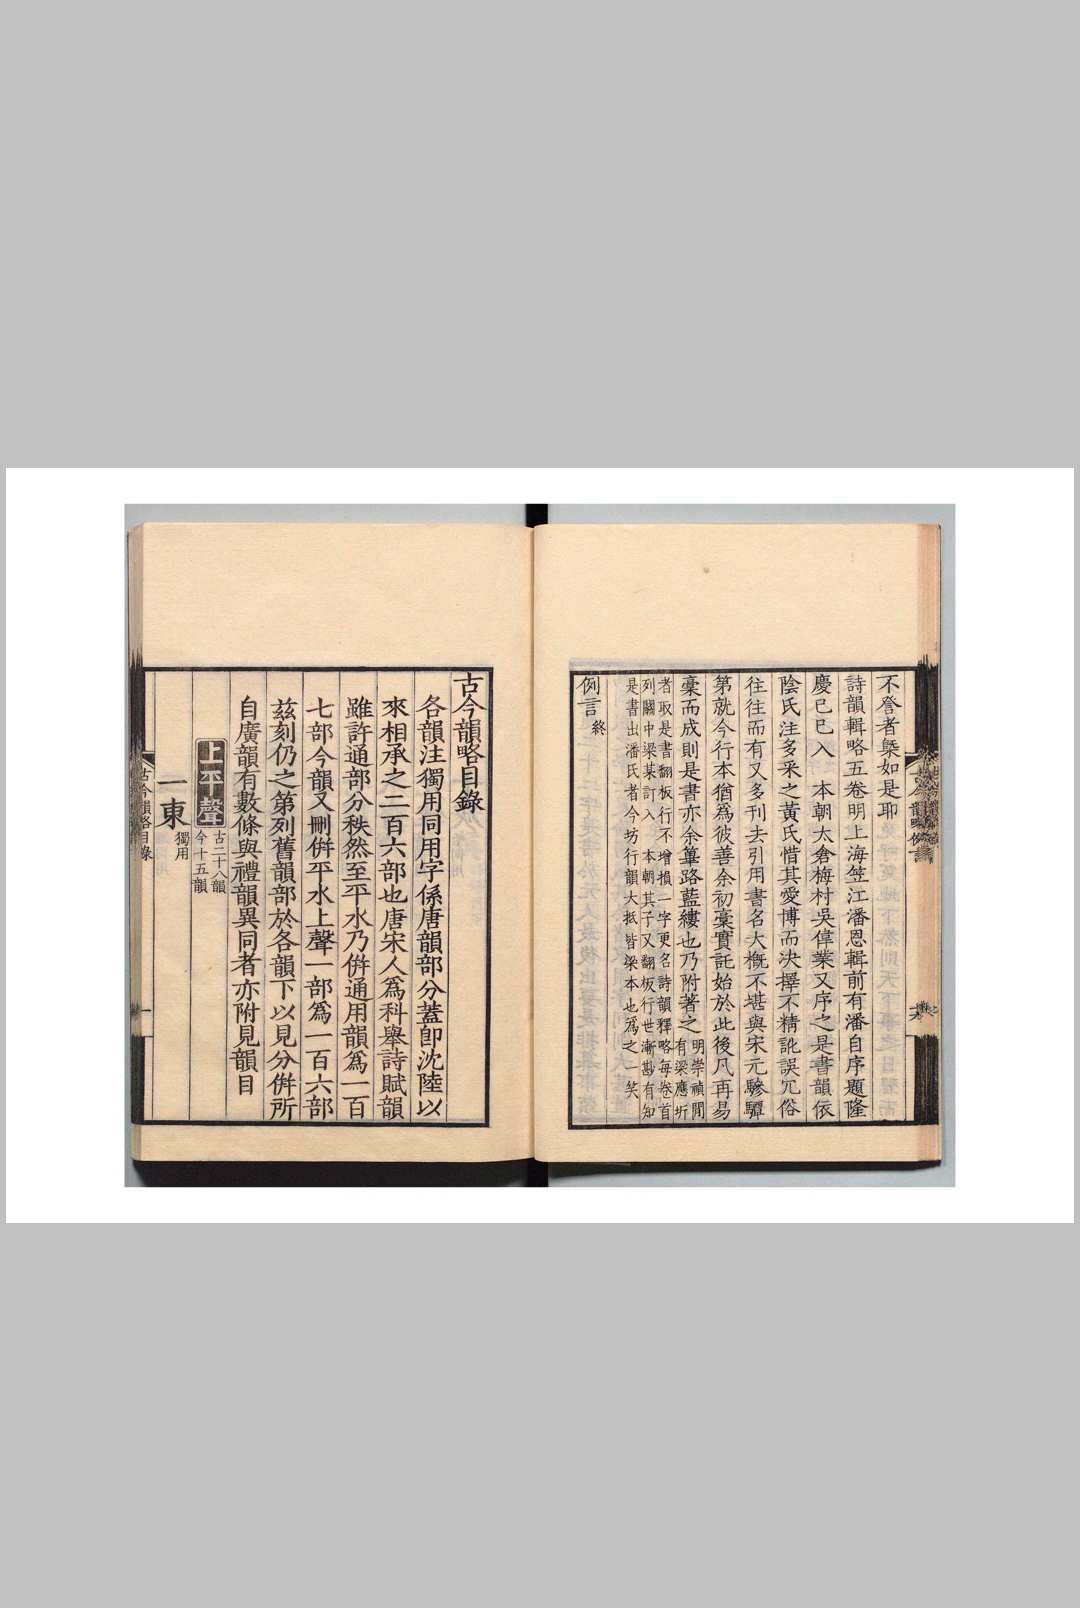 不謄者槩如是耶
詩韻輯略五卷明上海笠江潘恩輯前有潘自序題隆
慶己巳入　本朝太倉梅村吳偉業又序之是書韻依
陰氏注多采之黃氏惜其愛博而決擇不精訛誤冗俗
往往而有又多刊去引用書名大槪不堪與宋元驂驔
第就今行本猶爲彼善余初稾實託始於此後凡再易
稾而成則是書亦余蓽路藍縷也乃附著之
明崇禎閒有梁應圻
者取是書翻板行不增損一字更名詩韻釋略每卷首
列關中梁某訂入　本朝其子又翻板行世漸尠有知
是書出潘氏者今坊行韻大抵皆梁本也爲之一笑
例言終
古今韻略目錄
各韻注獨用同用字係唐韻部分蓋卽沈陸以
來相承之二百六部也唐宋人爲科舉詩賦韻
雖許通部分秩然至平水乃倂通用韻爲一百
七部今韻又刪倂平水上聲一部爲一百六部
茲刻仍之第列舊韻部於各韻下以見分倂所
自廣韻有數條與禮韻異同者亦附見韻目
上平聲
古二十八韻
今十五韻
一東
獨用
古今韻略目錄
一